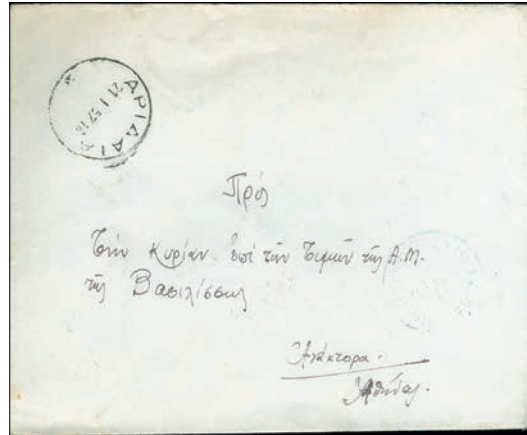 ΑΡΙΔΑΙΑ
21 Ι 57.18
Πρός
Τὴν Κυρίαν ἐπὶ τῶν Τιμῶν τῆς Α.Μ.
τῆς Βασιλίσσης
Ἀνάκτορα.
Ἀθήνας.